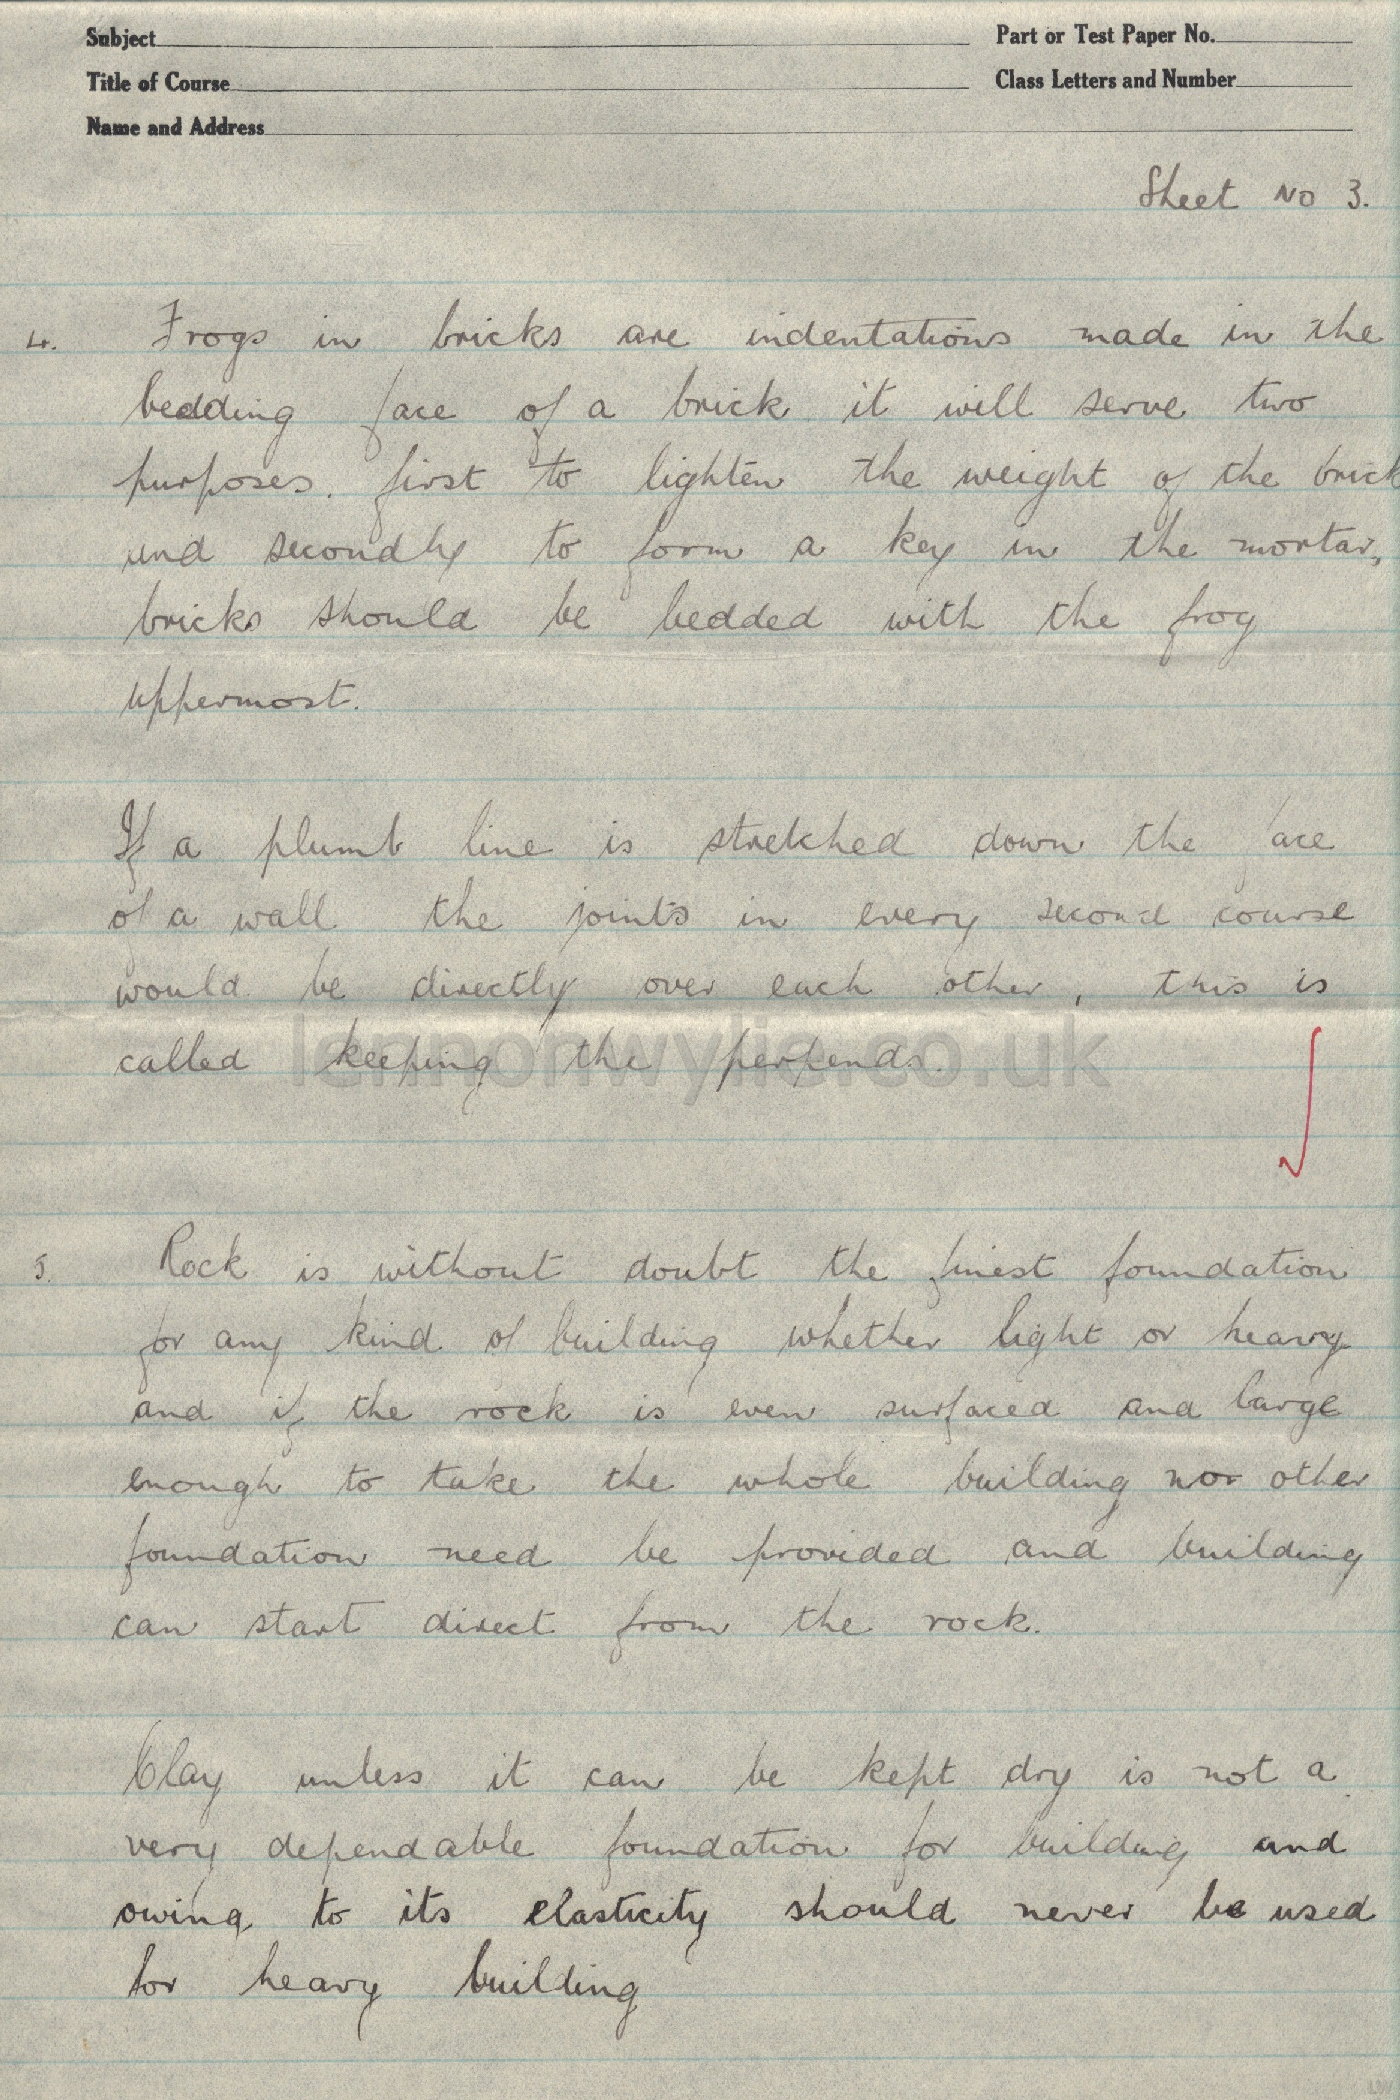 Subject
Part or Test Paper No.
Title of Course
Class Letters and Number
Name and Address
Sheet No 3.
4. Frogs in bricks are indentations made in the
bedding face of a brick it will serve two
purposes. first to lighten the weight of the brick
and secondly to form a key in the mortar,
bricks should be bedded with the frog
uppermost.
If a plumb line is stretched down the face
of a wall the joints in every second course
would be directly over each other, this is
called keeping the perpends.
lennonwylie.co.uk
5. Rock is without doubt the finest foundation
for any kind of building whether light or heavy
and if the rock is even surfaced and large
enough to take the whole building nor other
foundation need be provided and building
can start direct from the rock.
Clay unless it can be kept dry is not a
very dependable foundation for building and
owing to its elasticity should never be used
for heavy building